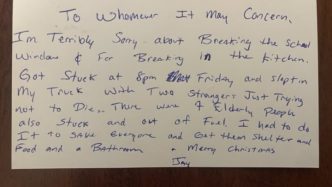 To Whomever It May Concern,
I'm Terribly Sorry about Breaking the School
Window & For Breaking in the Kitchen.
Got Stuck at 8pm Friday and slept in
My Truck with Two Strangers Just Trying
not to Die. There were 7 Elderly People
also Stuck and out of Fuel. I had to do
It to SAVE everyone and Get them Shelter and
Food and a Bathroom. Merry Christmas
Jay